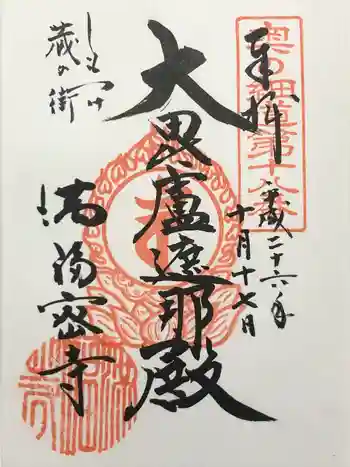 奥の細道第十八番
奉拝
平成二十六年
十月十七日
大毘盧遮那殿
しもつけ
蔵の街
満福密寺